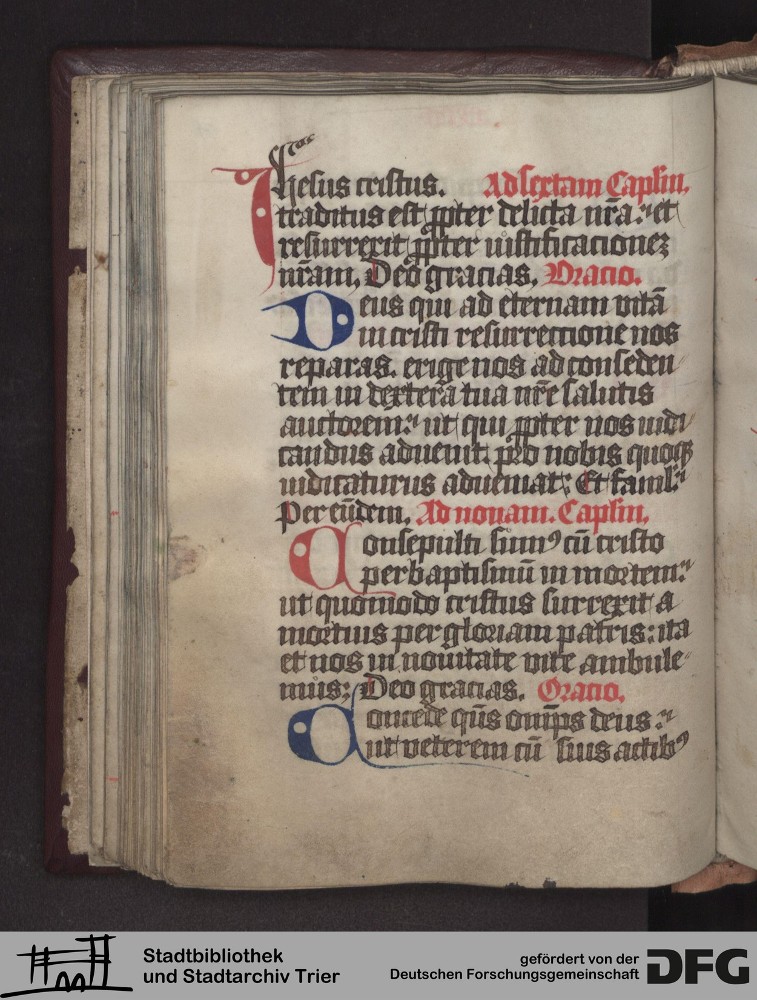 Ihesus cristus. Ad sextam Caplm.
traditus est ꝓpter delicta nr̄a: et
resurrexit ꝓpter iustificacionez
nr̄am. Deo gracias. Oracio.
Deus qui ad eternam vitā
in cristi resurrectione nos
reparas. erige nos ad conseden
tem in dextera tua nr̄e salutis
auctorem: ut qui ꝓpter nos iudi
candus aduenit. pro nobis quoqꝫ
iudicaturus adueniat: Et faml:
Per eūdem. Ad nonam. Caplm.
Consepulti sumꝰ cū cristo
per baptismū in mortem:
ut quomodo cristus surrexit a
mortuis per gloriam patris: ita
et nos in nouitate vite ambule
mus: Deo gracias. Oracio.
Concede qs̄ omīps deus:
ut veterem cū suis actibꝰ
Stadtbibliothek
und Stadtarchiv Trier
gefördert von der
Deutschen Forschungsgemeinschaft
DFG